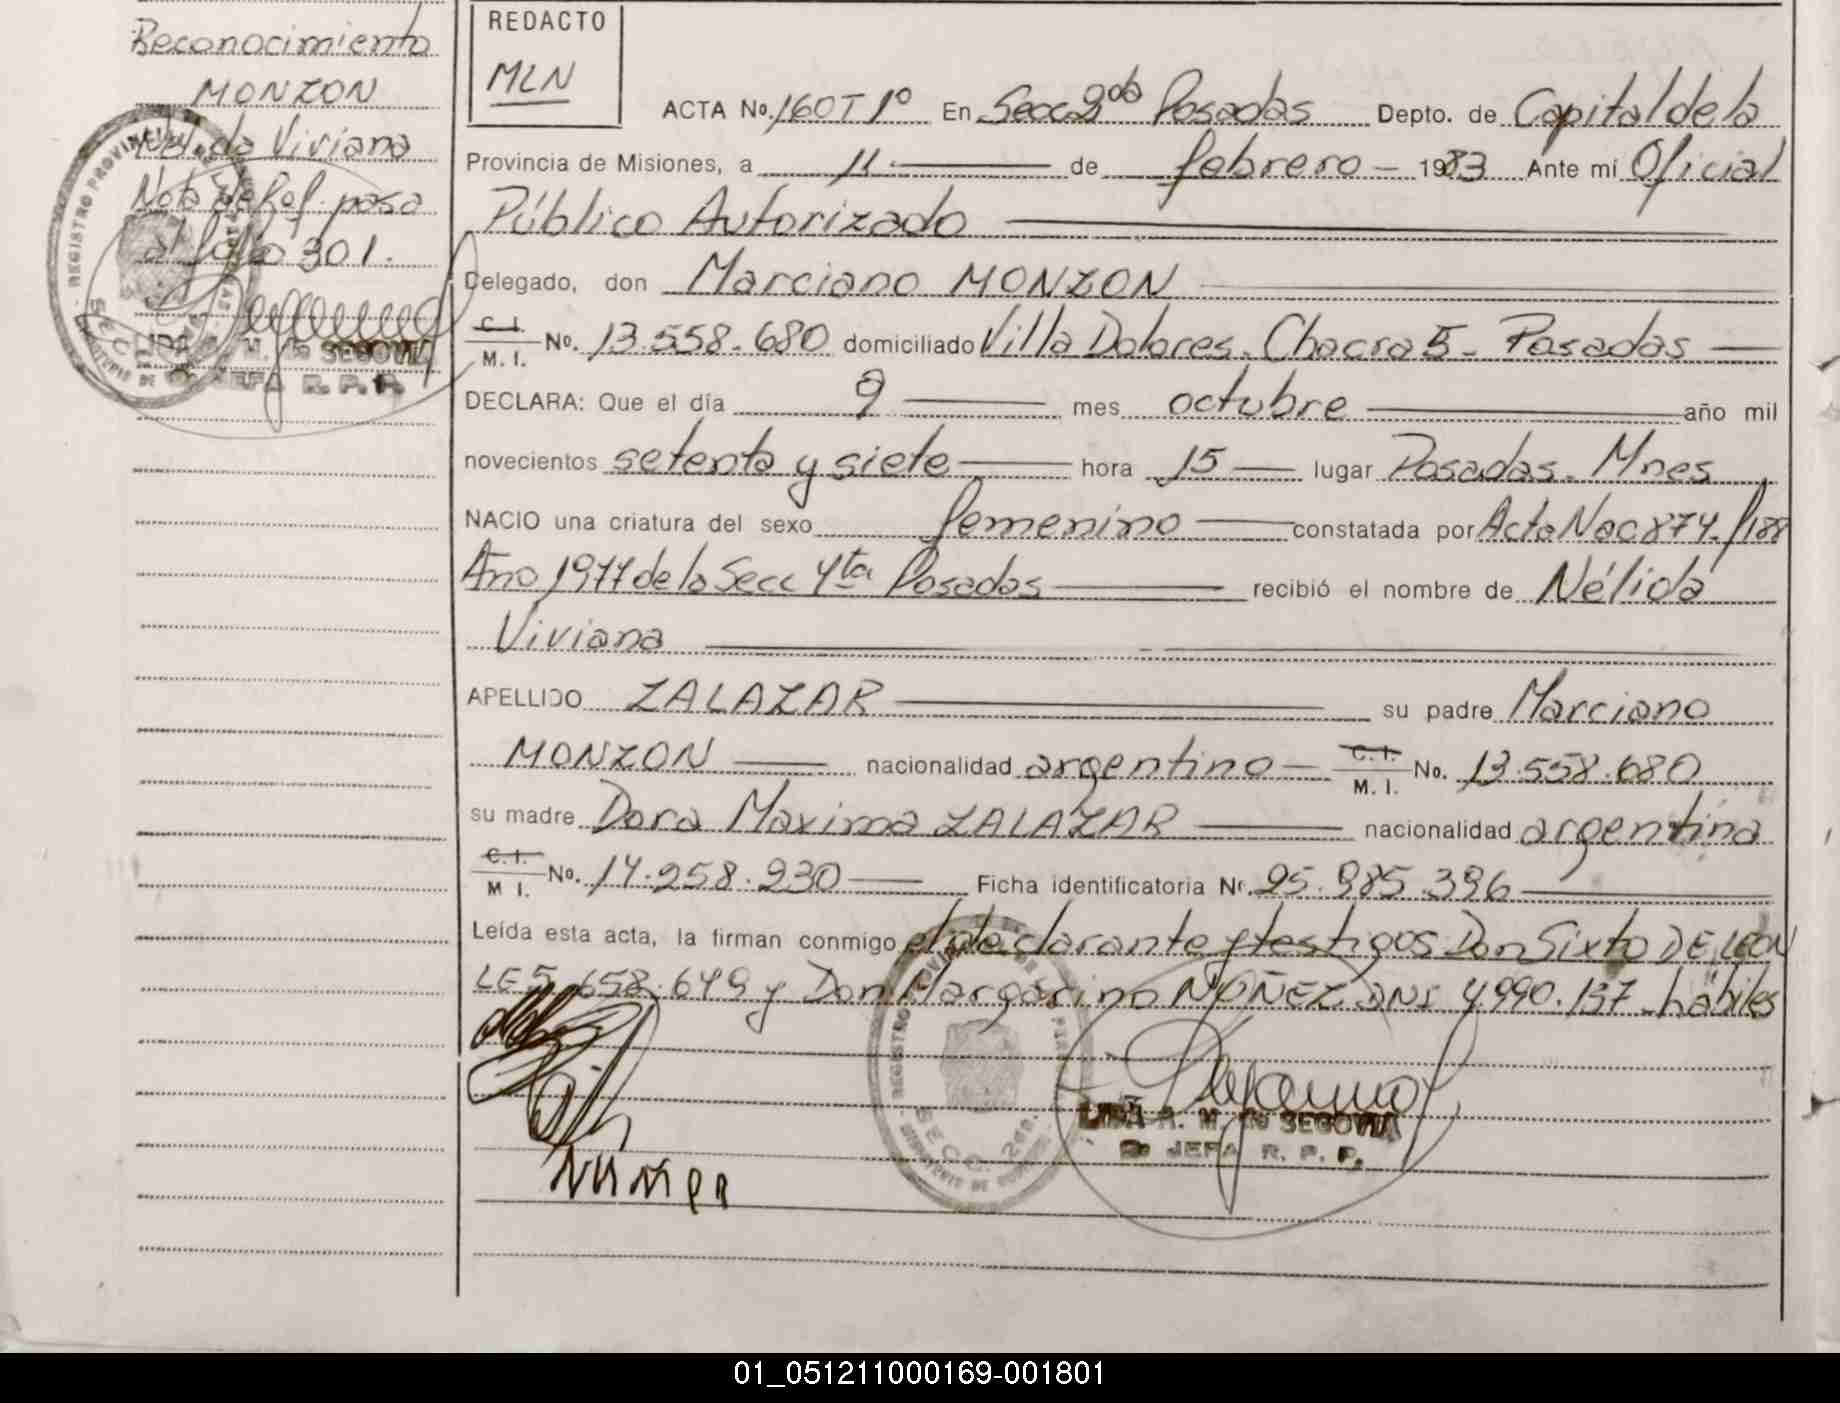 Reconocimiento
MONZON
Nélida Viviana
Nota de Ref. pasa
al folio 301.
REGISTRO PROVINCIAL DE LAS PERSONAS
SECC. 2da
LIDA R. M. de SEGOVIA
2o JEFA R. P. P.
REDACTO
MLN
ACTA No. 160 T 1º En Secc 2da Posadas Depto. de Capital de la
Provincia de Misiones, a 11 de febrero - 1983 Ante mí Oficial
Público Autorizado
Delegado, don Marciano MONZON
C. I.
M. I. No. 13.558.680 domiciliado Villa Dolores. Chacra 5 - Posadas
DECLARA: Que el día 9 mes octubre año mil
novecientos setenta y siete hora 15 lugar Posadas. Mnes
NACIO una criatura del sexo femenino constatada por Acta Nac 874. f 188
Año 1977 de la Secc 4ta Posadas recibió el nombre de Nélida
Viviana
APELLIDO ZALAZAR su padre Marciano
MONZON nacionalidad argentino C. I. M. I. No. 13.558.680
su madre Dora Maxima ZALAZAR nacionalidad argentina
C. I. M I. No. 14.258.230 Ficha identificatoria Nr. 25.985.396
Leída esta acta, la firman conmigo el declarante y testigos Don Sixto DE LEON
LE 5.658.649 y Don Margarino NUÑEZ DNI 4.990.137 - hábiles
REGISTRO PROVINCIAL DE LAS PERSONAS
SECC. 2da
LIDA R. M. de SEGOVIA
2o JEFA R. P. P.
01_051211000169-001801